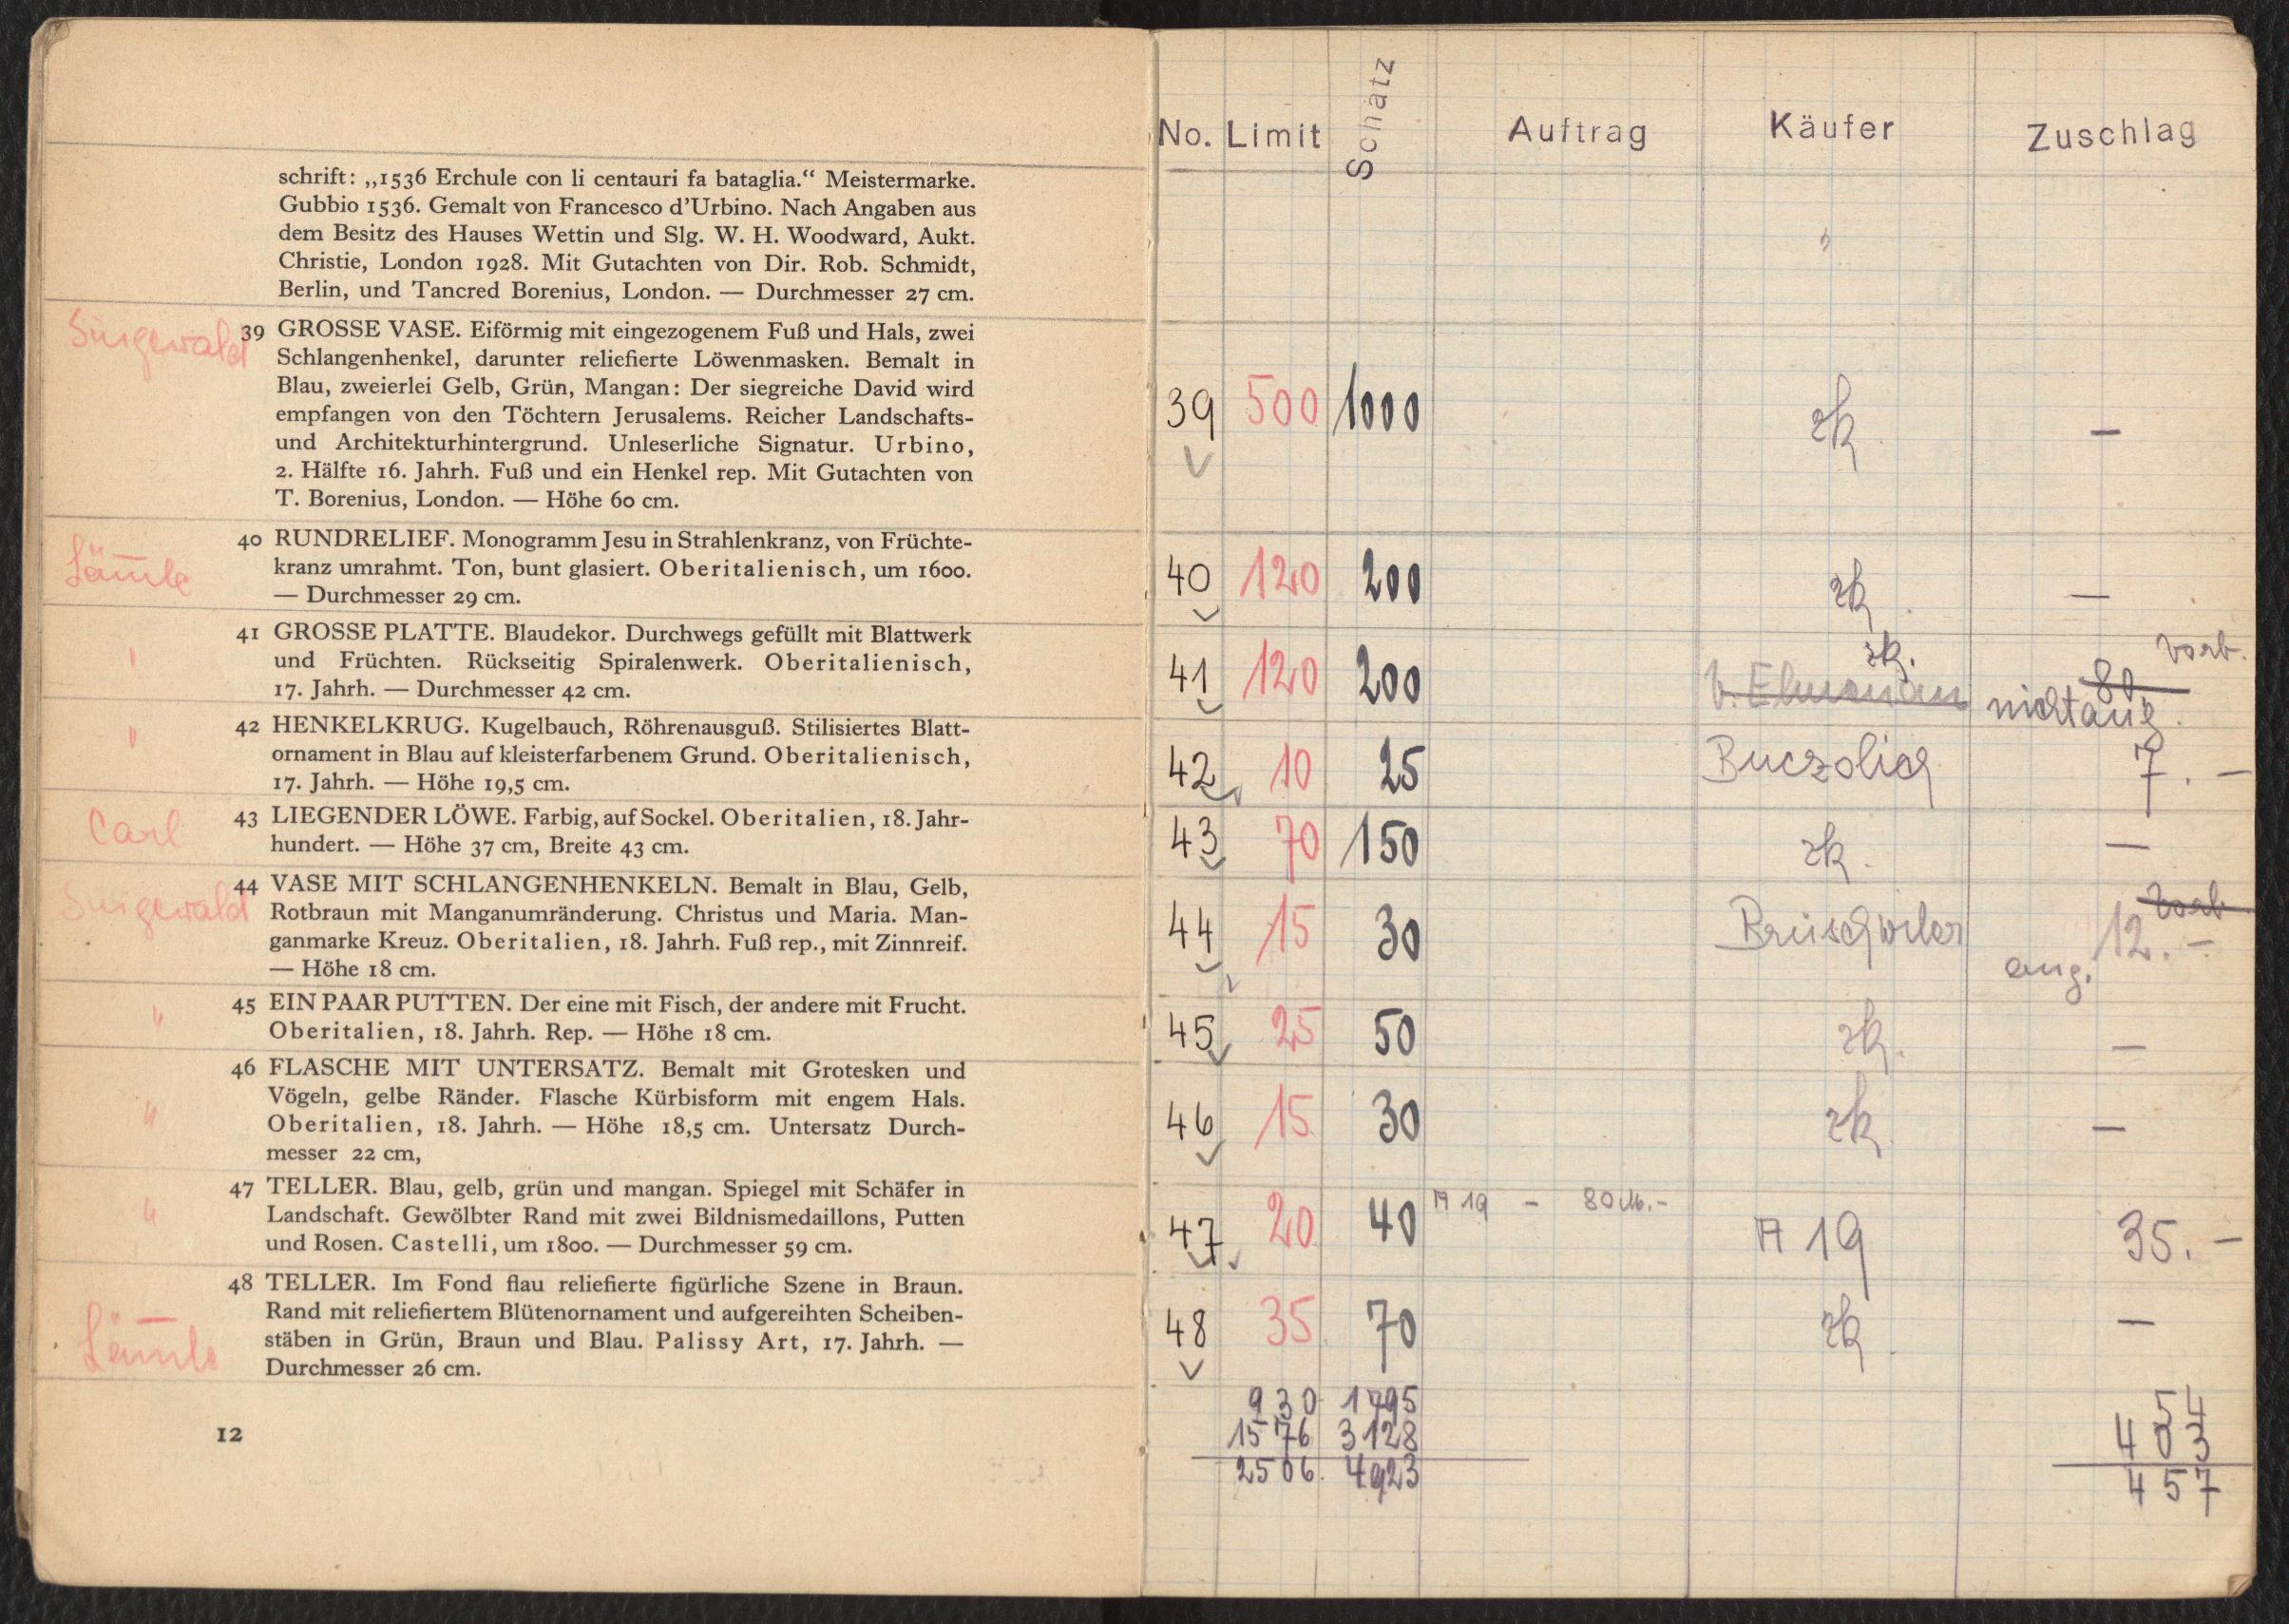 schrift: „1536 Erchule con li centauri fa bataglia.“ Meistermarke.
Gubbio 1536. Gemalt von Francesco d’Urbino. Nach Angaben aus
dem Besitz des Hauses Wettin und Slg. W. H. Woodward, Aukt.
Christie, London 1928. Mit Gutachten von Dir. Rob. Schmidt,
Berlin, und Tancred Borenius, London. — Durchmesser 27 cm.
39 GROSSE VASE. Eiförmig mit eingezogenem Fuß und Hals, zwei
Schlangenhenkel, darunter reliefierte Löwenmasken. Bemalt in
Blau, zweierlei Gelb, Grün, Mangan: Der siegreiche David wird
empfangen von den Töchtern Jerusalems. Reicher Landschafts-
und Architekturhintergrund. Unleserliche Signatur. Urbino,
2. Hälfte 16. Jahrh. Fuß und ein Henkel rep. Mit Gutachten von
T. Borenius, London. — Höhe 60 cm.
Lämle
40 RUNDRELIEF. Monogramm Jesu in Strahlenkranz, von Früchte-
kranz umrahmt. Ton, bunt glasiert. Oberitalienisch, um 1600.
— Durchmesser 29 cm.
"
41 GROSSE PLATTE. Blaudekor. Durchwegs gefüllt mit Blattwerk
und Früchten. Rückseitig Spiralenwerk. Oberitalienisch,
17. Jahrh. — Durchmesser 42 cm.
"
42 HENKELKRUG. Kugelbauch, Röhrenausguß. Stilisiertes Blatt-
ornament in Blau auf kleisterfarbenem Grund. Oberitalienisch,
17. Jahrh. — Höhe 19,5 cm.
Carl
43 LIEGENDER LÖWE. Farbig, auf Sockel. Oberitalien, 18. Jahr-
hundert. — Höhe 37 cm, Breite 43 cm.
44 VASE MIT SCHLANGENHENKELN. Bemalt in Blau, Gelb,
Rotbraun mit Manganumränderung. Christus und Maria. Man-
ganmarke Kreuz. Oberitalien, 18. Jahrh. Fuß rep., mit Zinnreif.
— Höhe 18 cm.
"
45 EIN PAAR PUTTEN. Der eine mit Fisch, der andere mit Frucht.
Oberitalien, 18. Jahrh. Rep. — Höhe 18 cm.
"
46 FLASCHE MIT UNTERSATZ. Bemalt mit Grotesken und
Vögeln, gelbe Ränder. Flasche Kürbisform mit engem Hals.
Oberitalien, 18. Jahrh. — Höhe 18,5 cm. Untersatz Durch-
messer 22 cm,
"
47 TELLER. Blau, gelb, grün und mangan. Spiegel mit Schäfer in
Landschaft. Gewölbter Rand mit zwei Bildnismedaillons, Putten
und Rosen. Castelli, um 1800. — Durchmesser 59 cm.
Lämle
48 TELLER. Im Fond flau reliefierte figürliche Szene in Braun.
Rand mit reliefiertem Blütenornament und aufgereihten Scheiben-
stäben in Grün, Braun und Blau. Palissy Art, 17. Jahrh. —
Durchmesser 26 cm.
12
No. Limit Schätz Auftrag Käufer Zuschlag
39 500 1000 zk —
40 120 200 zk —
41 120 200 zk. 80 vorb.
42 10 25 Buczolich 7.—
43 70 150 zk. —
44 15 30 Brüschwiler 12.— vorb
ang.
45 25 50 zk. —
46 15 30 zk —
47 20 40 A 19 – 80 M.- A 19 35.—
48 35 70 zk —
930 1795 54
1576 3128 403
2506. 4923 457